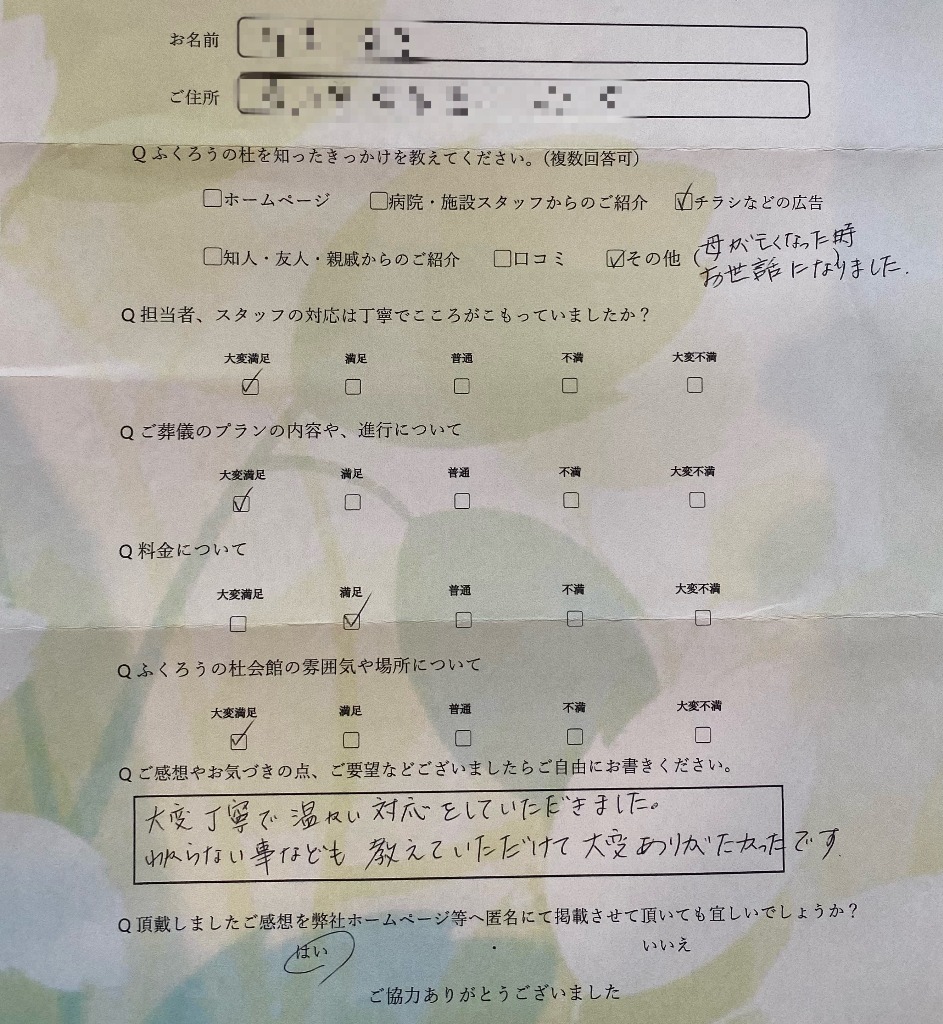 お名前
ご住所
Q ふくろうの杜を知ったきっかけを教えてください。(複数回答可)
□ホームページ □病院・施設スタッフからのご紹介 ☑チラシなどの広告
□知人・友人・親戚からのご紹介 □口コミ ☑その他 (母が亡くなった時
お世話になりました。)
Q 担当者、スタッフの対応は丁寧でこころがこもっていましたか?
大変満足 満足 普通 不満 大変不満
☑ □ □ □ □
Q ご葬儀のプランの内容や、進行について
大変満足 満足 普通 不満 大変不満
☑ □ □ □ □
Q 料金について
大変満足 満足 普通 不満 大変不満
□ ☑ □ □ □
Q ふくろうの杜会館の雰囲気や場所について
大変満足 満足 普通 不満 大変不満
☑ □ □ □ □
Q ご感想やお気づきの点、ご要望などございましたらご自由にお書きください。
大変丁寧で温かい対応をしていただきました。
わからない事なども 教えていただけて大変ありがたかったです。
Q 頂戴しましたご感想を弊社ホームページ等へ匿名にて掲載させて頂いても宜しいでしょうか?
はい ・ いいえ
ご協力ありがとうございました